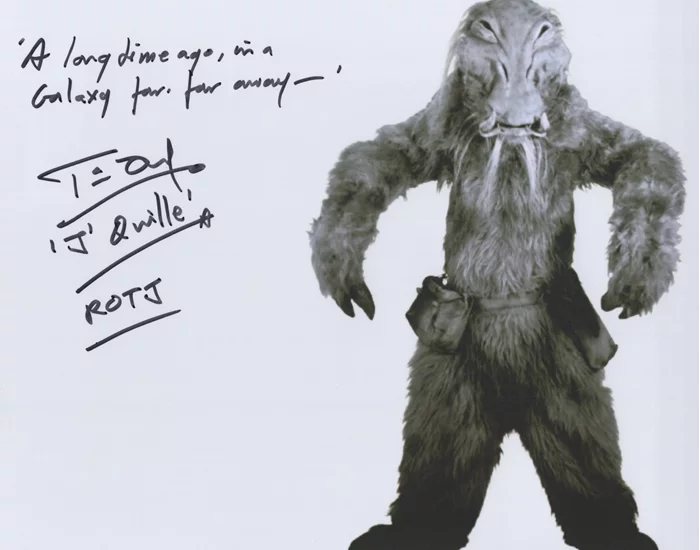 'A long time ago, in a
Galaxy far. far away — '
'J' Quille'
ROTJ